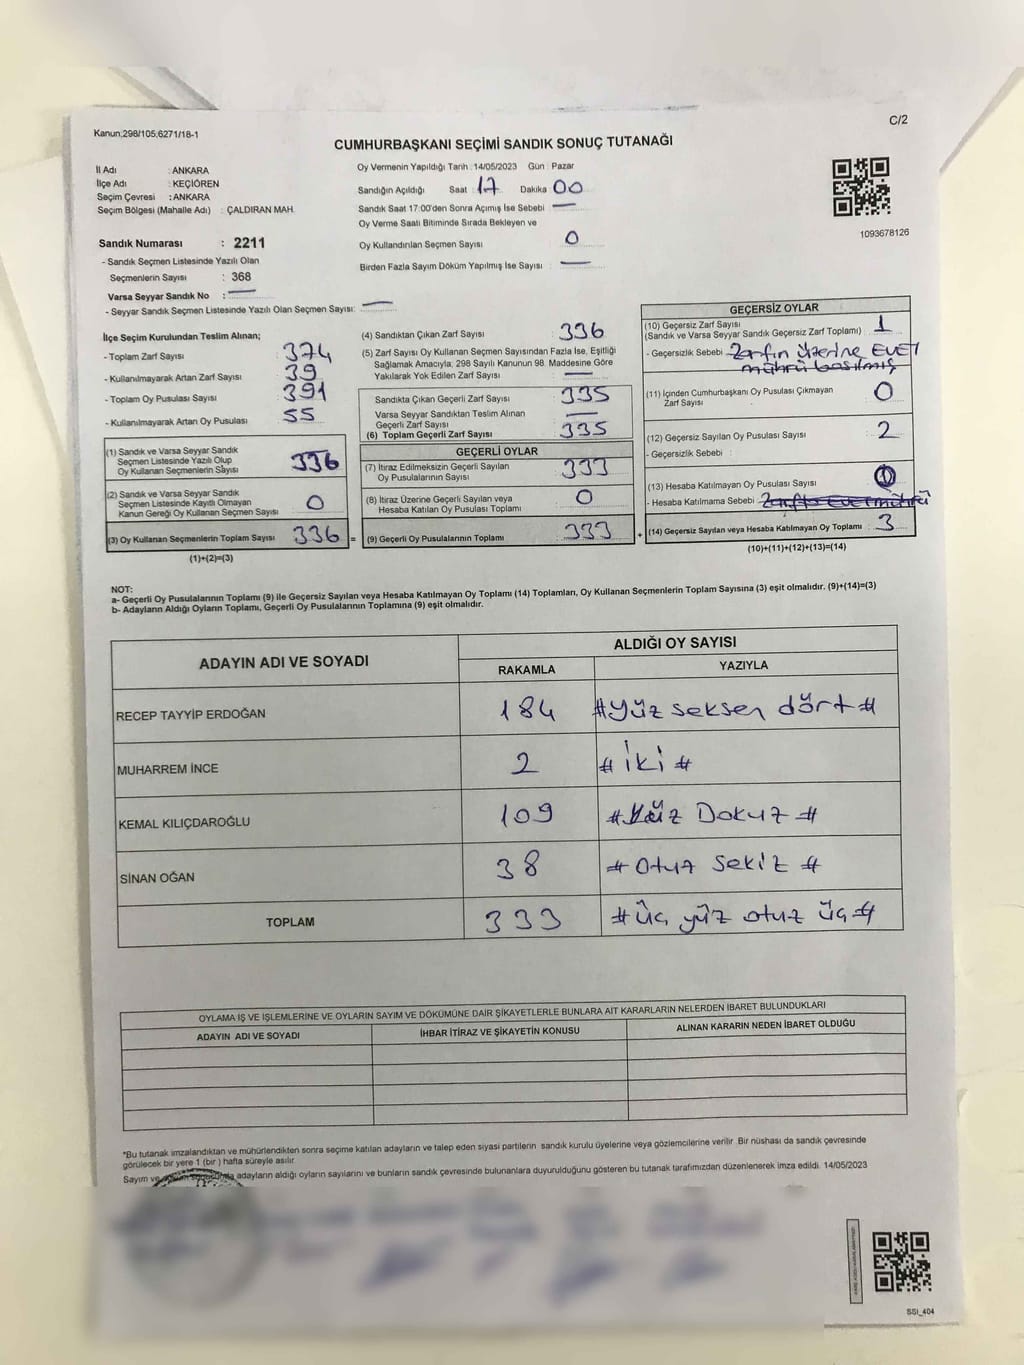 Kanun;298/105;6271/18-1
C/2
CUMHURBAŞKANI SEÇİMİ SANDIK SONUÇ TUTANAĞI
İl Adı : ANKARA
İlçe Adı : KEÇİÖREN
Seçim Çevresi : ANKARA
Seçim Bölgesi (Mahalle Adı) : ÇALDIRAN MAH.
Oy Vermenin Yapıldığı Tarih : 14/05/2023 Gün : Pazar
Sandığın Açıldığı Saat : 17 Dakika 00
Sandık Saat 17:00'den Sonra Açımış İse Sebebi : —
Oy Verme Saati Bitiminde Sırada Bekleyen ve
Oy Kullandırılan Seçmen Sayısı 0
Birden Fazla Sayım Döküm Yapılmış İse Sayısı : —
1093678126
Sandık Numarası : 2211
- Sandık Seçmen Listesinde Yazılı Olan
Seçmenlerin Sayısı : 368
Varsa Seyyar Sandık No : —
- Seyyar Sandık Seçmen Listesinde Yazılı Olan Seçmen Sayısı: —
İlçe Seçim Kurulundan Teslim Alınan;
- Toplam Zarf Sayısı : 374
- Kullanılmayarak Artan Zarf Sayısı : 39
- Toplam Oy Pusulası Sayısı : 391
- Kullanılmayarak Artan Oy Pusulası : 55
(1) Sandık ve Varsa Seyyar Sandık
Seçmen Listesinde Yazılı Olup
Oy Kullanan Seçmenlerin Sayısı 336
(2) Sandık ve Varsa Seyyar Sandık
Seçmen Listesinde Kayıtlı Olmayan
Kanun Gereği Oy Kullanan Seçmen Sayısı 0
(3) Oy Kullanan Seçmenlerin Toplam Sayısı 336 =
(1)+(2)=(3)
(4) Sandıktan Çıkan Zarf Sayısı : 336
(5) Zarf Sayısı Oy Kullanan Seçmen Sayısından Fazla İse, Eşitliği
Sağlamak Amacıyla; 298 Sayılı Kanunun 98. Maddesine Göre
Yakılarak Yok Edilen Zarf Sayısı : —
Sandıkta Çıkan Geçerli Zarf Sayısı : 335
Varsa Seyyar Sandıktan Teslim Alınan
Geçerli Zarf Sayısı : —
(6) Toplam Geçerli Zarf Sayısı : 335
GEÇERLİ OYLAR
(7) İtiraz Edilmeksizin Geçerli Sayılan
Oy Pusulalarının Sayısı : 333
(8) İtiraz Üzerine Geçerli Sayılan veya
Hesaba Katılan Oy Pusulası Toplamı : 0
(9) Geçerli Oy Pusulalarının Toplamı : 333 +
GEÇERSİZ OYLAR
(10) Geçersiz Zarf Sayısı
(Sandık ve Varsa Seyyar Sandık Geçersiz Zarf Toplamı) : 1
- Geçersizlik Sebebi : Zarfın üzerine EVET
mührü basılmış
(11) İçinden Cumhurbaşkanı Oy Pusulası Çıkmayan
Zarf Sayısı : 0
(12) Geçersiz Sayılan Oy Pusulası Sayısı : 2
- Geçersizlik Sebebi :
(13) Hesaba Katılmayan Oy Pusulası Sayısı :
- Hesaba Katılmama Sebebi : Zarfta Evet mührü
(14) Geçersiz Sayılan veya Hesaba Katılmayan Oy Toplamı : 3
(10)+(11)+(12)+(13)=(14)
NOT:
a- Geçerli Oy Pusulalarının Toplamı (9) ile Geçersiz Sayılan veya Hesaba Katılmayan Oy Toplamı (14) Toplamları, Oy Kullanan Seçmenlerin Toplam Sayısına (3) eşit olmalıdır. (9)+(14)=(3)
b- Adayların Aldığı Oyların Toplamı, Geçerli Oy Pusulalarının Toplamına (9) eşit olmalıdır.
ADAYIN ADI VE SOYADI
ALDIĞI OY SAYISI
RAKAMLA YAZIYLA
RECEP TAYYİP ERDOĞAN 184 #Yüz seksen dört#
MUHARREM İNCE 2 #İki#
KEMAL KILIÇDAROĞLU 109 #Yüz Dokuz#
SİNAN OĞAN 38 #Otuz Sekiz#
TOPLAM 333 #Üç yüz otuz üç#
OYLAMA İŞ VE İŞLEMLERİNE VE OYLARIN SAYIM VE DÖKÜMÜNE DAİR ŞİKAYETLERLE BUNLARA AİT KARARLARIN NELERDEN İBARET BULUNDUKLARI
ADAYIN ADI VE SOYADI İHBAR İTİRAZ VE ŞİKAYETİN KONUSU ALINAN KARARIN NEDEN İBARET OLDUĞU
*Bu tutanak imzalandıktan ve mühürlendikten sonra seçime katılan adayların ve talep eden siyasi partilerin sandık kurulu üyelerine veya gözlemcilerine verilir. Bir nüshası da sandık çevresinde
görülecek bir yere 1 (bir) hafta süreyle asılır.
Sayım ve adayların aldığı oyların sayılarını ve bunların sandık çevresinde bulunanlara duyurulduğunu gösteren bu tutanak tarafımızdan düzenlenerek imza edildi. 14/05/2023
SSI_404